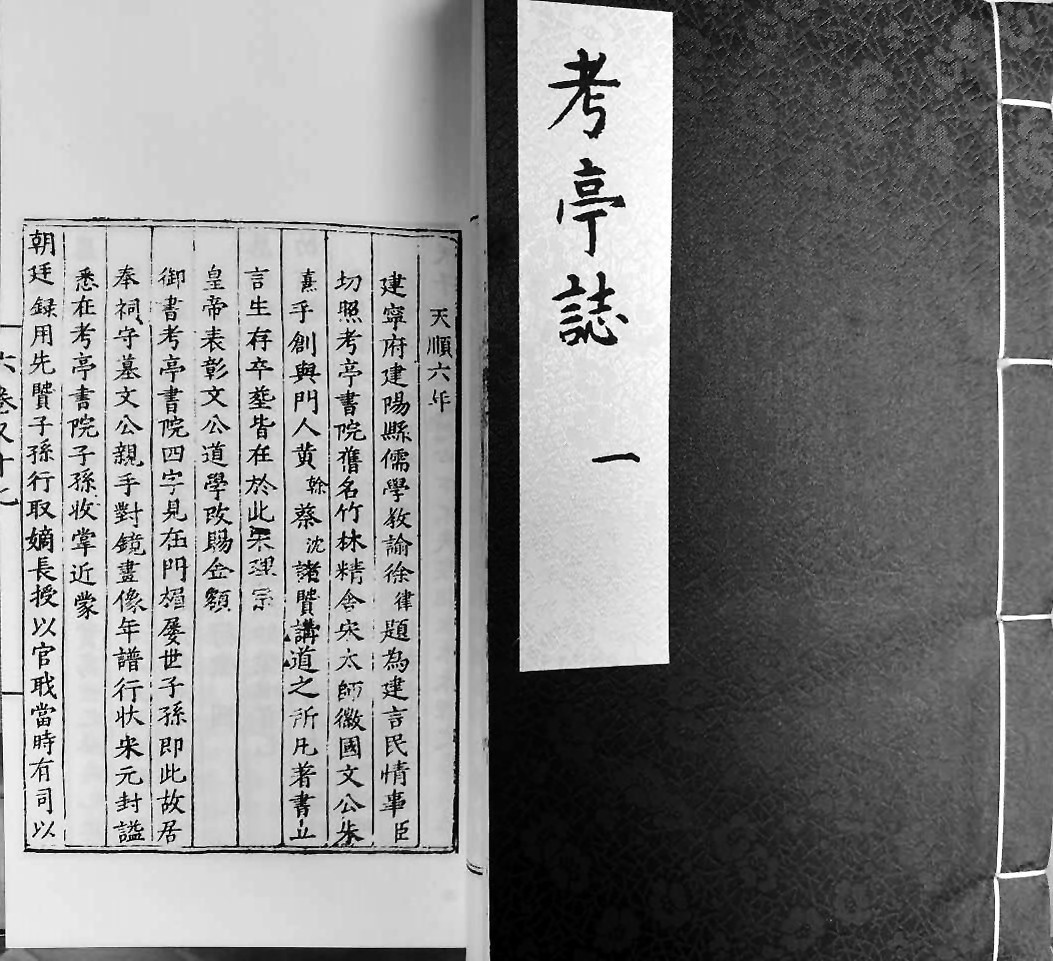 考亭誌
一
天順六年
建寧府建陽縣儒學教諭徐律題為建言民情事臣
切照考亭書院舊名竹林精舍宋太師徽國文公朱
熹手創與門人黄榦蔡沈諸賢講道之所凡著書立
言生存卒塟皆在於此宋理宗
皇帝表彰文公道學改賜金額
御書考亭書院四字見在門楣屡世子孫即此故居
奉祠守墓文公親手對鏡畫像年譜行狀宋元封謚
悉在考亭書院子孫收掌近蒙
朝廷録用先賢子孫行取嫡長授以官職當時有司以